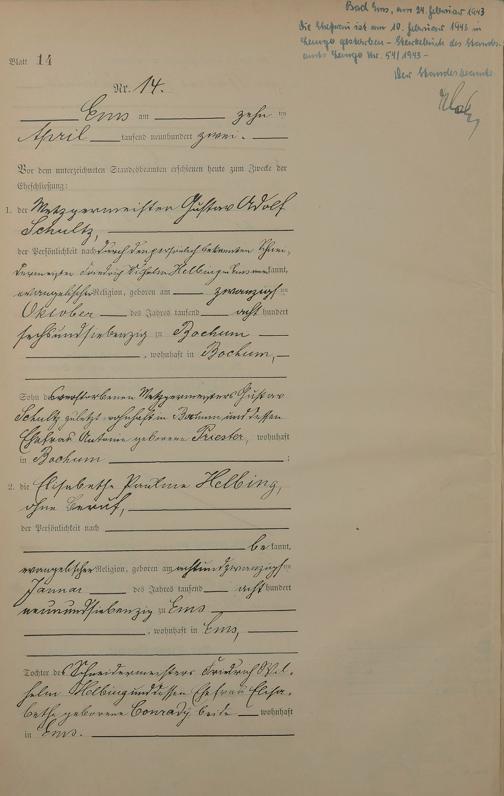 Bad Ems, am 24. Februar 1943
Die Ehefrau ist am 10. Februar 1943 in
Lemgo gestorben – Sterbebuch des Standes-
amts Lemgo Nr. 54/1943 –
Der Standesbeamte
Blatt 14
Nr. 14.
Ems am zehn ten
April tausend neunhundert zwei.
Vor dem unterzeichneten Standesbeamten erschienen heute zum Zwecke der
Eheschließung:
1. der Metzgermeister Gustav Adolf
Schultz,
der Persönlichkeit nach durch den persönlich bekannten Schnei-
dermeister Friedrich Wilhelm Helbing in Ems anerkannt,
evangelischer Religion, geboren am zwanzigsten
Oktober des Jahres tausend acht hundert
sechsundsiebenzig zu Bochum
, wohnhaft in Bochum,
Sohn des verstorbenen Metzgermeisters Gustav
Schultz zuletzt wohnhaft in Bochum und dessen
Ehefrau Antonie geborene Priester, wohnhaft
in Bochum ;
2. die Elisabethe Pauline Helbing,
ohne Beruf,
der Persönlichkeit nach
bekannt,
evangelischer Religion, geboren am achtundzwanzigsten
Januar des Jahres tausend acht hundert
neunundsiebenzig zu Ems
, wohnhaft in Ems,
Tochter des Schneidermeisters Friedrich Wil-
helm Helbing und dessen Ehefrau Elisa-
bethe geborene Conrady beide wohnhaft
in Ems.